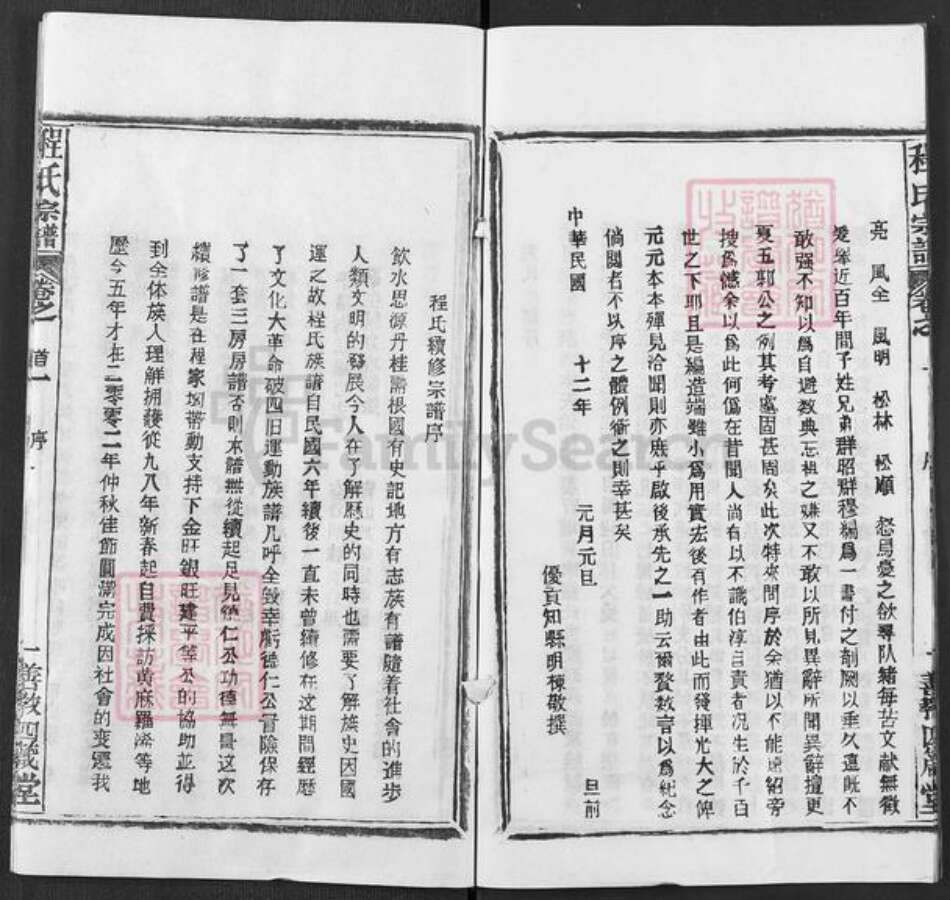 程氏宗譜
亮 風全 風明 松林 松順 怒焉憂之欲尋隊緒每苦文献無徵
爰舉近百年間子姓兄弟群昭群穆編爲一書付之剞劂以垂久遠旣不
敢强不知以爲自避数典忘祖之嫌又不敢以所見異辭所聞異辭擅更
夏五郭公之例其考慮固甚周矣此次特來問序於余猶以不能遠紹旁
搜爲憾余以爲此何傷在昔聞人尚有以不識伯淳自責者况生於千百
世之下耶且是編造端雖小爲用實宏後有作者由此而發揮光大之俾
元元本本殫見洽聞則亦庶乎啟後承先之一助云爾贅数言以爲紀念
倘閱者不以序之體例衡之則幸甚矣
中華民國 十二年 元月元旦 旦前
優貢知縣明棟敬撰
程氏續修宗譜序
飲水思源丹桂盤根國有史記地方有志族有譜隨着社會的進步
人類文明的發展今人在了解歷史的同時也需要了解族史因國
運之故程氏族譜自民國六年續後一直未曾續修在这期間經歷
了文化大革命破四旧運動族譜几呼全毁幸虧德仁公冒險保存
了一套三房房譜否則末譜無從續起足見德仁公功德無量这次
續修譜是在程家坳带動支持下金旺銀旺建平等公的協助並得
到全体族人理解拥護從九八年新春起自費採訪黄麻羅浠等地
歷今五年才在二零零二年仲秋佳節圓滿完成因社會的变遷我
程氏宗譜 卷之一 首一 序 一善教四箴堂
FamilySearch